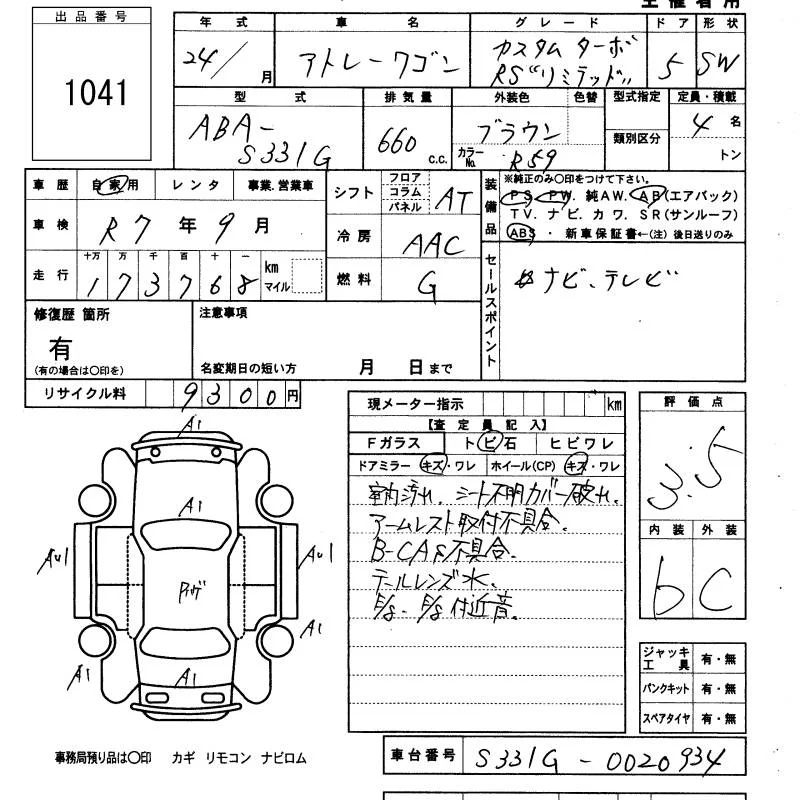 主催者用
出品番号
1041
年式 車名 グレード ドア 形状
24/ 月 アトレーワゴン カスタム ターボ RS"リミテッド" 5 SW
型式 排気量 外装色 色替 型式指定 定員・積載
ABA-S331G 660 c.c. ブラウン カラーNo. R59 類別区分 4 名 トン
車歴 自家用 レンタ 事業.営業車
車検 R7年9月
走行 十万 万 千 百 十 一 km マイル
173768
シフト フロア コラム パネル AT
冷房 AAC
燃料 G
装備品 ※純正のみ〇印をつけて下さい。
PS. PW. 純AW. AB(エアバック)
TV. ナビ. カワ. SR(サンルーフ)
ABS ・ 新車保証書←(注)後日送りのみ
セールスポイント ナビ、テレビ
修復歴 箇所
有
(有の場合は〇印を)
注意事項
名変期日の短い方 月 日まで
リサイクル料 9300円
現メーター指示 km
【査定員記入】
Fガラス トビ石 ヒビワレ
ドアミラー キズ・ワレ ホイール(CP) キズ・ワレ
室内汚れ、シート不明カバー破れ。
アームレスト取付不具合。
B-CAM不具合。
テールレンズ水。
付近音。
評価点
3.5
内装 外装
b C
ジャッキ工具 有・無
パンクキット 有・無
スペアタイヤ 有・無
A1
A1
A1
A1
A1
A1
事務局預り品は〇印 カギ リモコン ナビロム
車台番号 S331G-0020934